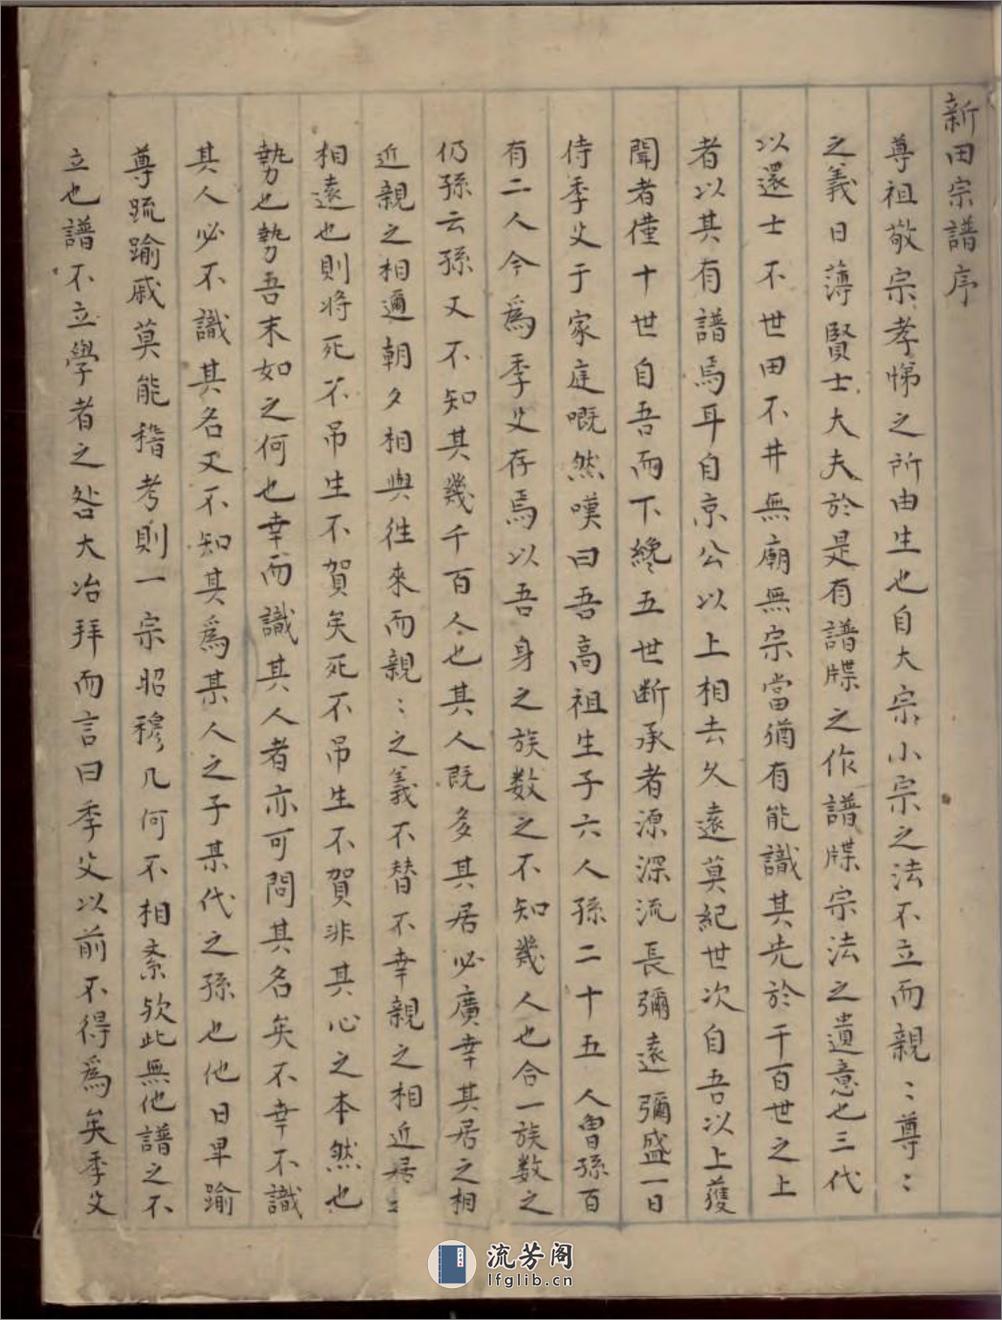 新田宗譜序
尊祖敬宗孝悌之所由生也自大宗小宗之法不立而親〻尊〻
之義日薄賢士大夫於是有譜牒之作譜牒宗法之遺意也三代
以還士不世田不井無廟無宗當猶有能識其先於千百世之上
者以其有譜焉耳自京公以上相去久遠莫紀世次自吾以上獲
聞者僅十世自吾而下纔五世斷承者源深流長彌遠彌盛一日
侍季父于家庭嘅然嘆曰吾高祖生子六人孫二十五人曾孫百
有二人今為季父存焉以吾身之族数之不知幾人也合一族数之
仍孫云孫又不知其幾千百人也其人既多其居必廣幸其居之相
近親之相邇朝夕相與往來而親〻之義不替不幸親之相近居〻
相遠也則將死不吊生不賀矣死不吊生不賀非其心之本然也
勢也勢吾末如之何也幸而識其人者亦可問其名矣不幸不識
其人必不識其名又不知其爲某人之子某代之孫也他日卑踰
尊疏踰戚莫能稽考則一宗昭穆几何不相紊欤此無他譜之不
立也譜不立學者之咎大冶拜而言曰季父以前不得爲矣季父
流芳阁
lfglib.cn